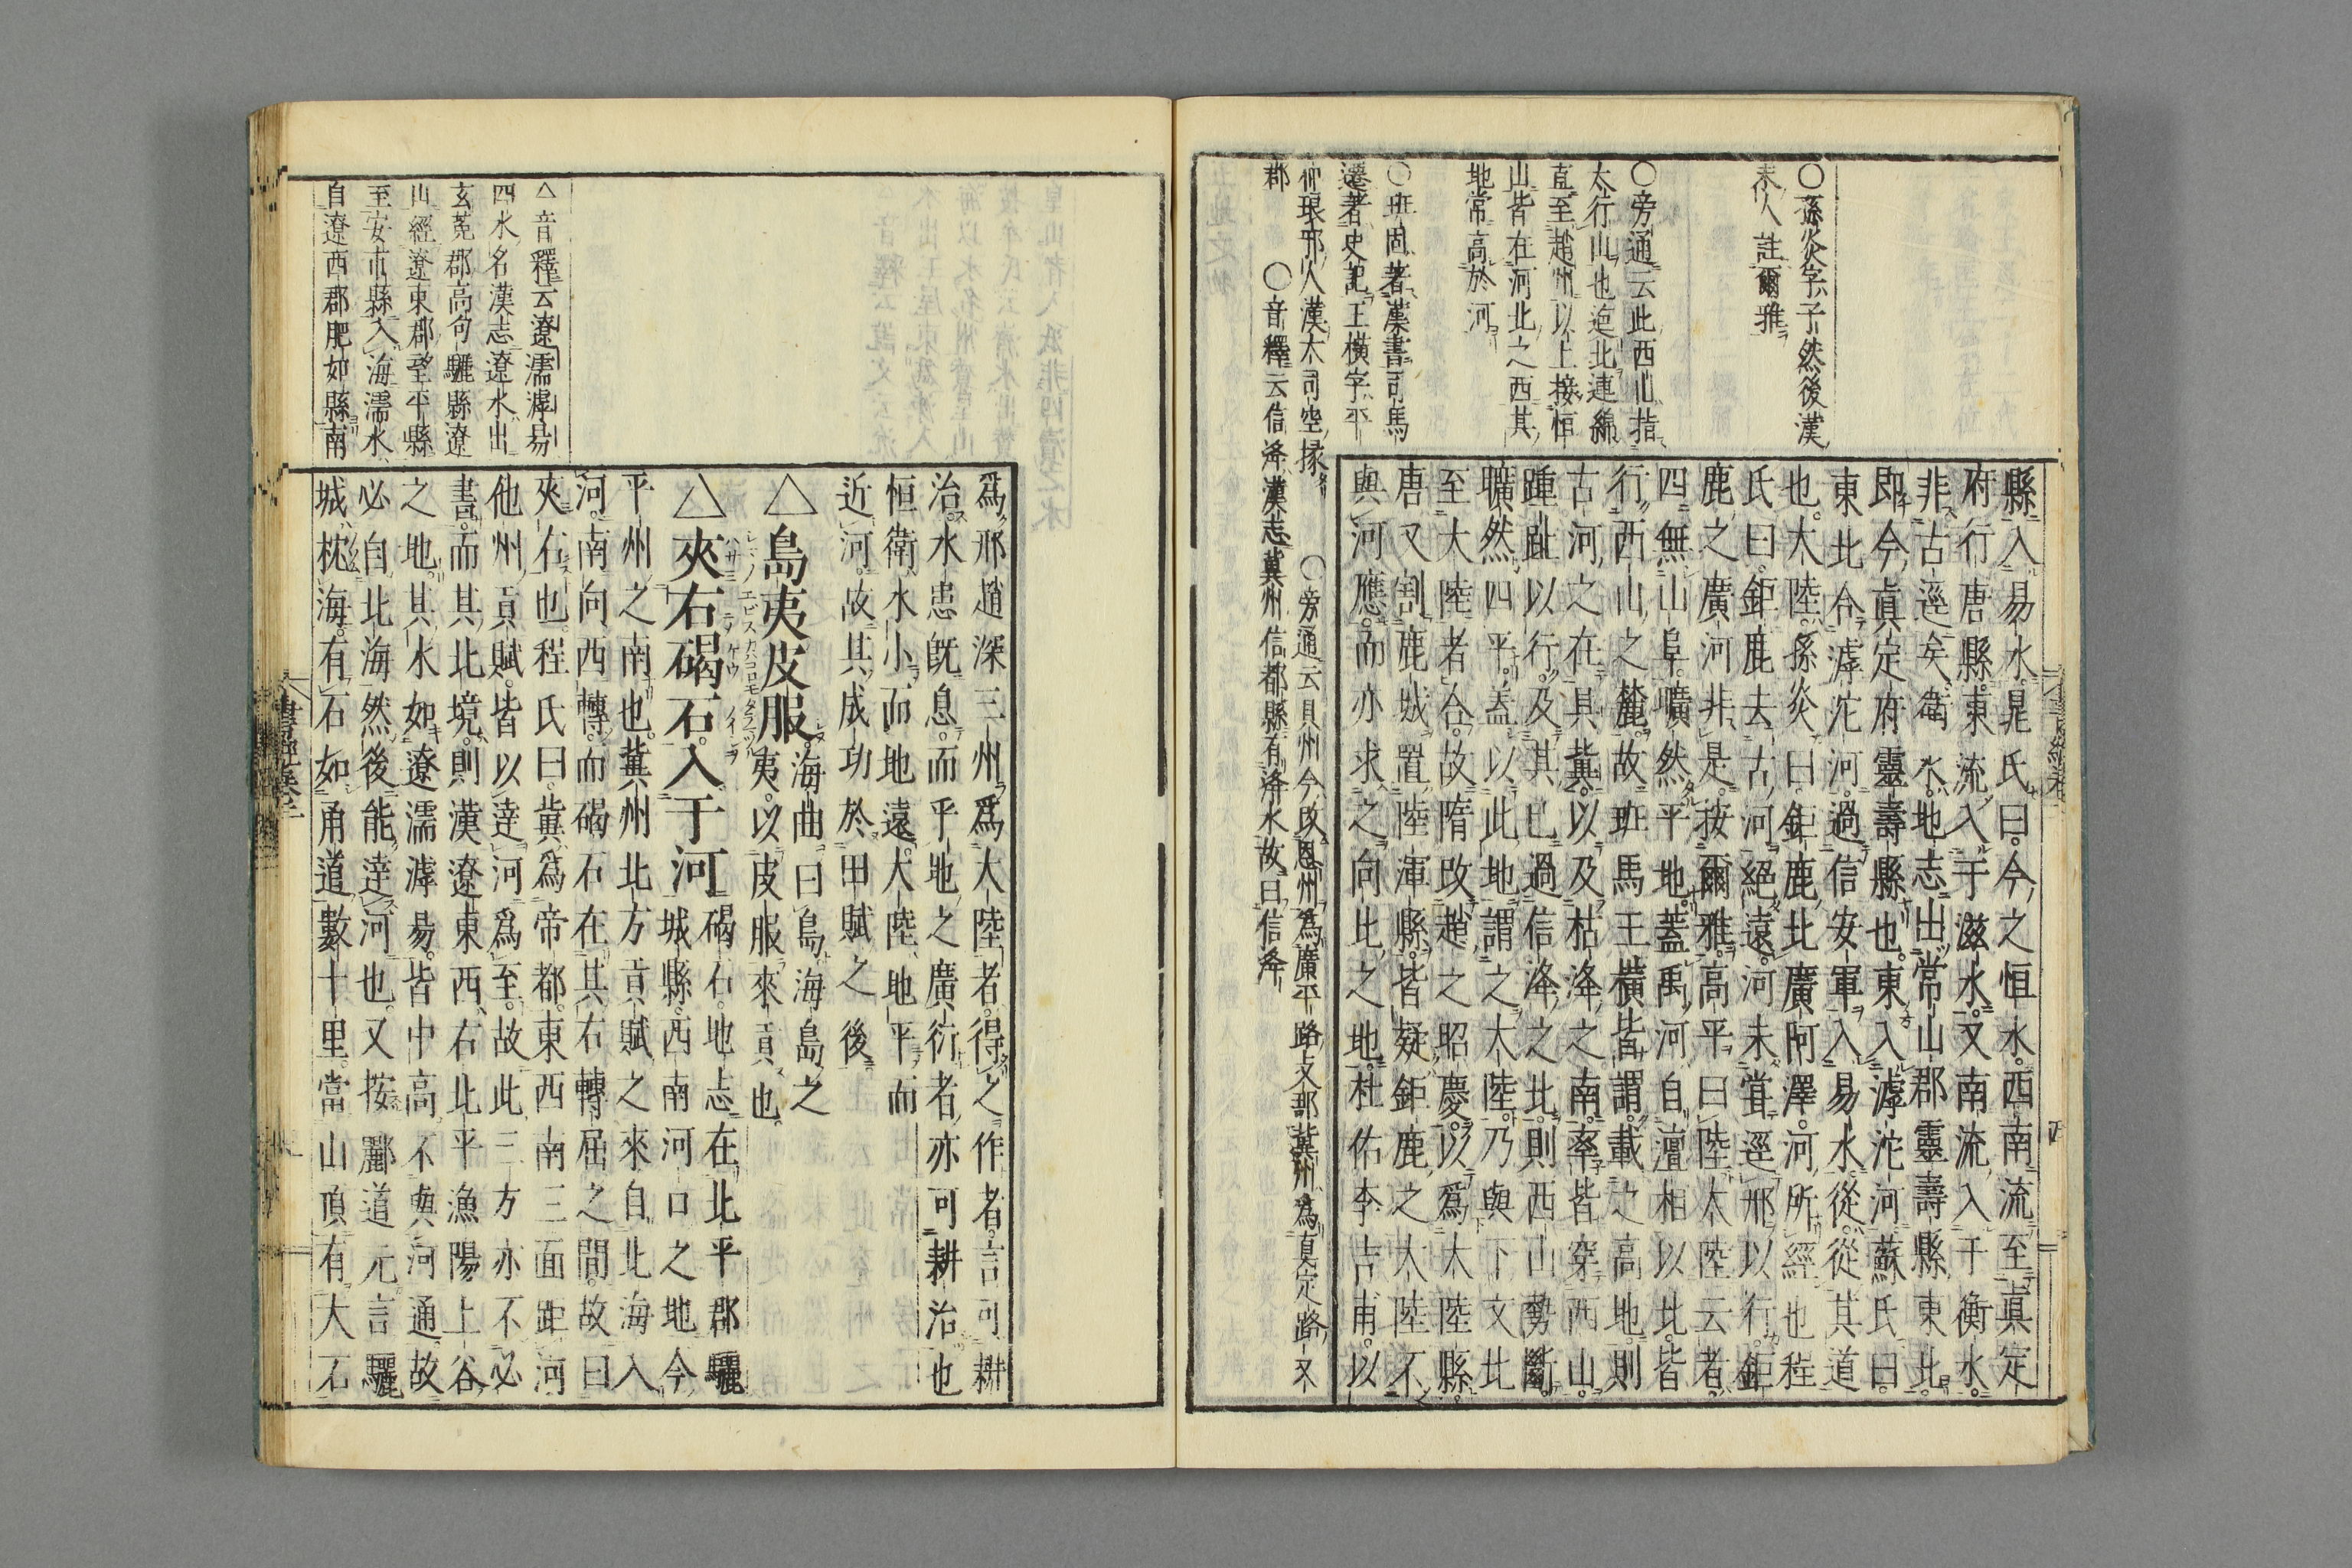 〇孫炎字子然後漢
末人註爾雅
〇旁通云此西山指
太行山也迤北連綿
直至趙州以上接恒
山皆在河北之西其
地常高於河
〇班固著漢書司馬
遷著史記王橫字平
仲琅邪人漢大司空掾
郡
〇音釋云信洚漢志冀州信都縣有洚水故曰信洚
〇旁通云貝州今改恩州爲廣平路支郡冀州爲真定路又
縣入易水晁氏曰今之恒水西南流至真定
府行唐縣東流入于滋水又南流入于衡水
非古逕矣衛水地志出常山郡靈壽縣東北
即今真定府靈壽縣也東入滹沱河蘇氏曰
東北合滹沱河過信安軍入易水從從其道
也大陸孫炎曰鉅鹿北廣阿澤河所經也程
氏曰鉅鹿去古河絕遠河未嘗逕邢以行鉅
鹿之廣河非是按爾雅高平曰陸大陸云者
四無山阜曠然平地蓋禹河自澶相以北皆
行西山之麓故班馬王橫皆謂載之高地則
古河之在貝冀以及枯洚之南率皆穿西山
踵趾以行及其已過信洚之北則西山勢斷
曠然四平蓋以此地謂之大陸乃與下文北
至大陸者合故隋改趙之昭慶以爲大陸縣
唐又割鹿城置陸渾縣皆疑鉅鹿之大陸不
與河應而亦求之向北之地杜佑李吉甫以
爲邢趙深三州爲大陸者得之作者言可耕
治水患既息而平地之廣衍者亦可耕治也
恒衛水小而地遠大陸地平而
近河故其成功於田賦之後
△島夷皮服海曲曰島海島之
夷以皮服來貢也
△夾右碣石入于河碣石地志在北平郡驪
城縣西南河口之地今
平州之南也冀州北方貢賦之來自北海入
河南向西轉而碣石在其右轉屈之間故曰
夾右也程氏曰冀爲帝都東西南三面距河
他州貢賦皆以達河爲至故此三方亦不必
書而其北境則漢遼東西右北平漁陽上谷
之地其水如遼濡滹易皆中高不與河通故
必自北海然後能達河也又按酈道元言驪
城枕海有石如甬道數十里當山頂有大石
△音釋云遼濡滹易
四水名漢志遼水出
玄菟郡高句驪縣遼
山經遼東郡望平縣
至安市縣入海濡水
自遼西郡肥如縣南